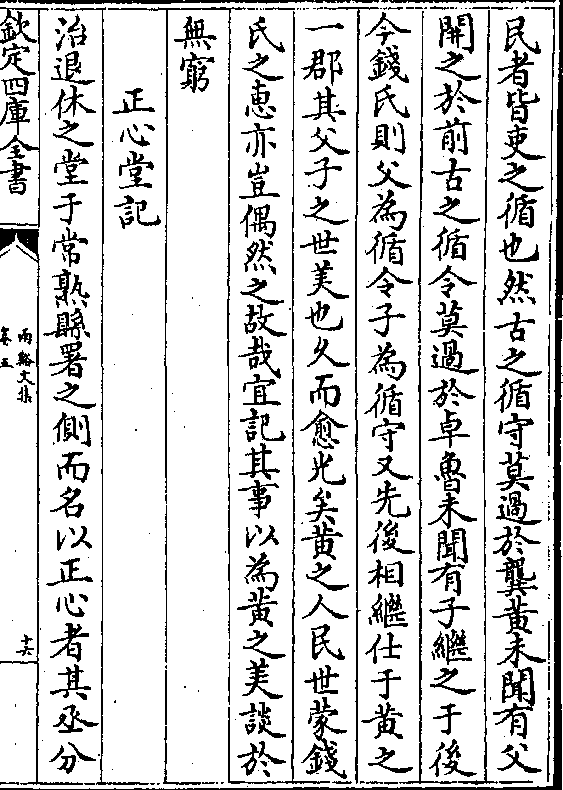 民者皆吏之循也然古之循守莫過於龔黄未聞有父
開之於前古之循令莫過於卓魯未聞有子繼之于後
今錢氏則父為循令子為循守又先後相繼仕于黄之
一郡其父子之世美也久而愈光矣黄之人民世蒙錢
氏之恵亦豈偶然之故哉宜記其事以為黄之美談於
無窮
正心堂記
治退休之堂于常熟縣署之側而名以正心者其丞分
欽定四庫全書
兩谿文集
卷五
十六